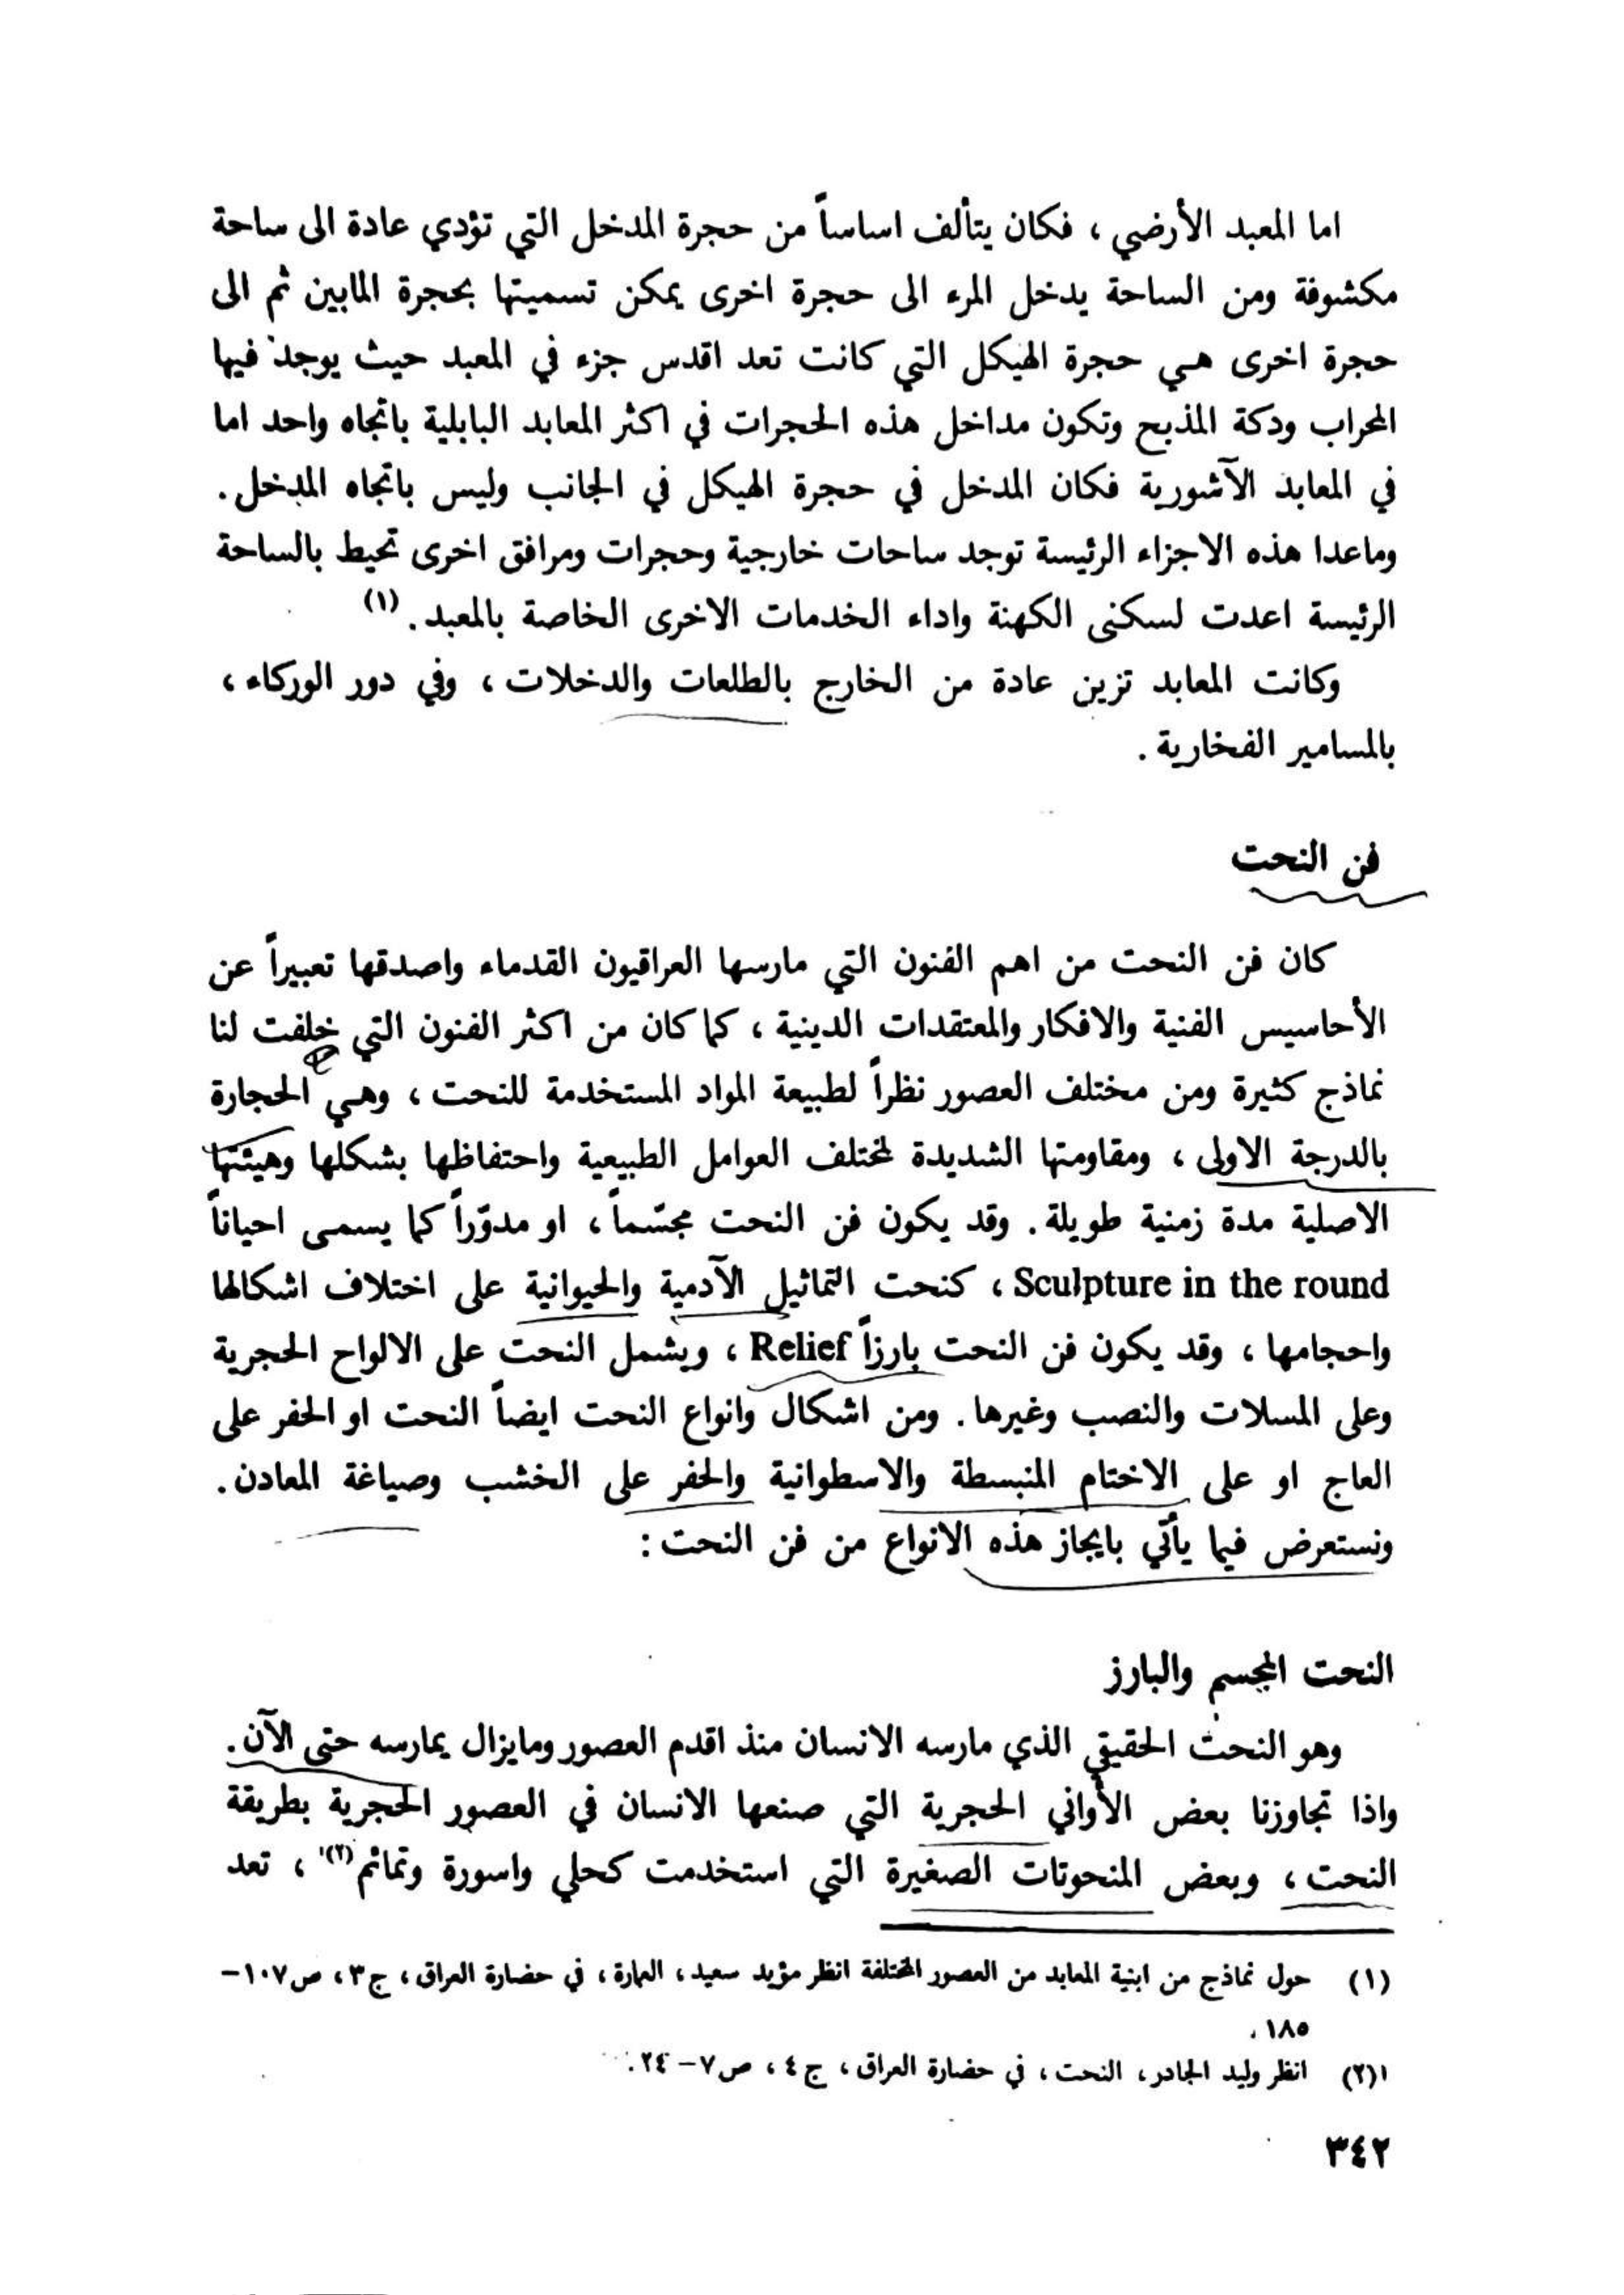 اما المعبد الأرضي ، فكان يتألف اساساً من حجرة المدخل التي تؤدي عادة الى ساحة
مكشوفة ومن الساحة يدخل المرء الى حجرة اخرى يمكن تسميتها بحجرة المابين ثم الى
حجرة اخرى هي حجرة الهيكل التي كانت تعد اقدس جزء في المعبد حيث يوجد فيها
المحراب ودكة المذبح وتكون مداخل هذه الحجرات في اكثر المعابد البابلية باتجاه واحد اما
في المعابد الآشورية فكان المدخل في حجرة الهيكل في الجانب وليس باتجاه المدخل .
وماعدا هذه الاجزاء الرئيسة توجد ساحات خارجية وحجرات ومرافق اخرى تحيط بالساحة
الرئيسة اعدت لسكنى الكهنة واداء الخدمات الاخرى الخاصة بالمعبد . (١)
وكانت المعابد تزين عادة من الخارج بالطلعات والدخلات ، وفي دور الوركاء ،
بالمسامير الفخارية .
فن النحت
كان فن النحت من اهم الفنون التي مارسها العراقيون القدماء واصدقها تعبيراً عن
الأحاسيس الفنية والافكار والمعتقدات الدينية ، كما كان من اكثر الفنون التي خلفت لنا
نماذج كثيرة ومن مختلف العصور نظراً لطبيعة المواد المستخدمة للنحت ، وهي الحجارة
بالدرجة الاولى ، ومقاومتها الشديدة لمختلف العوامل الطبيعية واحتفاظها بشكلها وهيئتها
الاصلية مدة زمنية طويلة . وقد يكون فن النحت مجسّماً ، او مدوّراً كما يسمى احياناً
Sculpture in the round ، كنحت التماثيل الآدمية والحيوانية على اختلاف اشكالها
واحجامها ، وقد يكون فن النحت بارزاً Relief ، ويشمل النحت على الالواح الحجرية
وعلى المسلات والنصب وغيرها . ومن اشكال وانواع النحت ايضاً النحت او الحفر على
العاج او على الاختام المنبسطة والاسطوانية والحفر على الخشب وصياغة المعادن .
ونستعرض فيما يأتي بايجاز هذه الانواع من فن النحت :
النحت المجسم والبارز
وهو النحت الحقيقي الذي مارسه الانسان منذ اقدم العصور ومايزال يمارسه حتى الآن .
واذا تجاوزنا بعض الأواني الحجرية التي صنعها الانسان في العصور الحجرية بطريقة
النحت ، وبعض المنحوتات الصغيرة التي استخدمت كحلي واسورة وتمائم (٢) ، تعد
(١) حول نماذج من ابنية المعابد من العصور المختلفة انظر مؤيد سعيد ، العمارة ، في حضارة العراق ، ج ٣ ، ص ١٠٧ –
١٨٥ .
(٢) انظر وليد الجادر ، النحت ، في حضارة العراق ، ج ٤ ، ص ٧ – ٢٤ .
٣٤٢